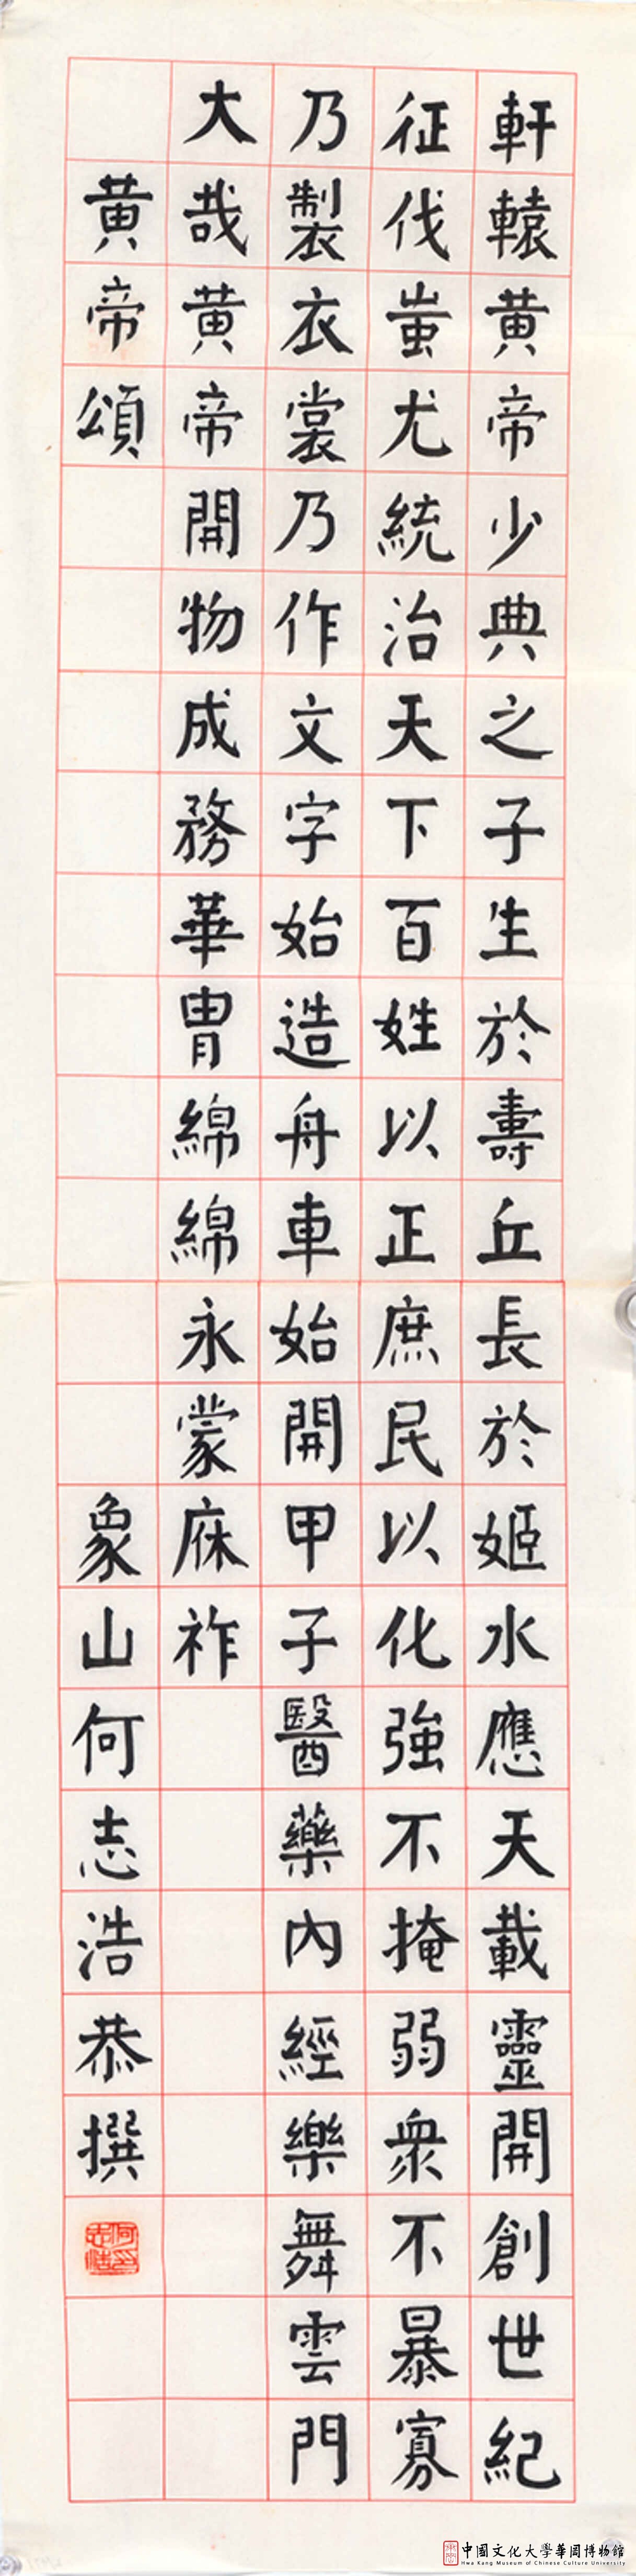 軒轅黃帝少典之子生於壽丘長於姬水應天載靈開創世紀
征伐蚩尤統治天下百姓以正庶民以化強不掩弱衆不暴寡
乃製衣裳乃作文字始造舟車始開甲子醫藥內經樂舞雲門
大哉黃帝開物成務華胄綿綿永蒙庥祚
黃帝頌
象山何志浩恭撰
何志浩印
中國文化大學華岡博物館
Hwa Kang Museum of Chinese Culture University